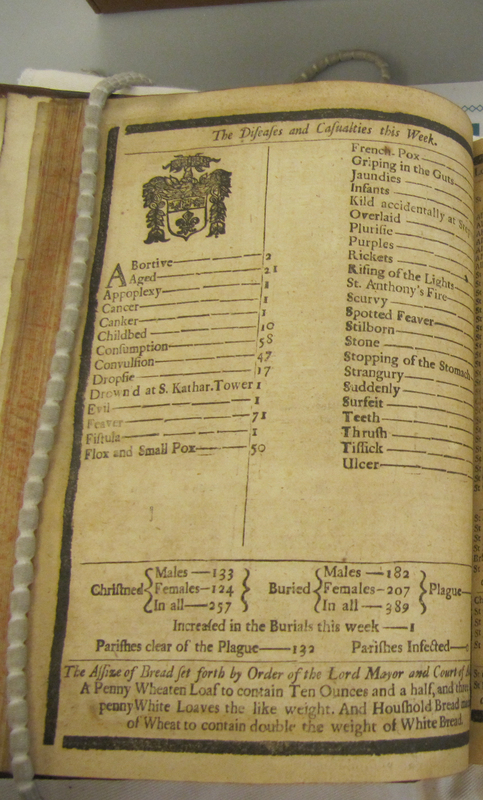 The Diſeaſes and Caſualties this Week.
ABortive 2
Aged 21
Appoplexy 1
Cancer 1
Canker 1
Childbed 10
Conſumption 58
Convulſion 47
Dropſie 17
Drown d at S. Kathar. Tower 1
Evil 1
Feaver 71
Fiſtula 1
Flox and Small Pox 50
French Pox
Griping in the Guts
Jaundies
Infants
Kild accidentally at
Overlaid
Pluriſie
Purples
Rickets
Riſing of the Lights
St. Anthony's Fire
Scurvy
Spotted Feaver
Stilborn
Stone
Stopping of the Stomach
Strangury
Suddenly
Surfeit
Teeth
Thruſh
Tiſſick
Ulcer
Chriſtned { Males — 133
Females — 124
In all — 257 }
Buried { Males — 182
Females — 207
In all — 389 } Plague —
Increaſed in the Burials this week — 1
Pariſhes clear of the Plague — 132 Pariſhes Infected —
The Aſſize of Bread ſet forth by Order of the Lord Mayor and Court of
A Penny Wheaten Loaf to contain Ten Ounces and a half, and three
penny White Loaves the like weight. And Houſhold Bread
of Wheat to contain double the weight of White Bread.